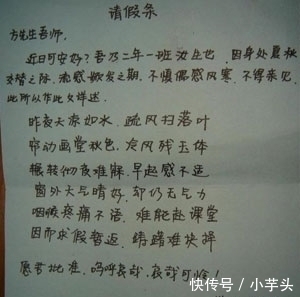 请假条
方先生吾师,
近日可安好?吾乃二年一班 也,因身处夏秋
交替之际,流感始发之期,不慎偶感风寒,不得亲见,
此所以作此文详述
昨夜天凉如水,疏风扫落叶
窗动画堂秋色,友风残玉体
辗转彻夜难寐,早起感不适
窗外天气晴好,却仍无气力
咽喉疼痛不语,难能赴课堂
因而求假暂返,结路难抉择
愿君批准,呜呼哀哉,哀哉可怜!
快传号/小芋头